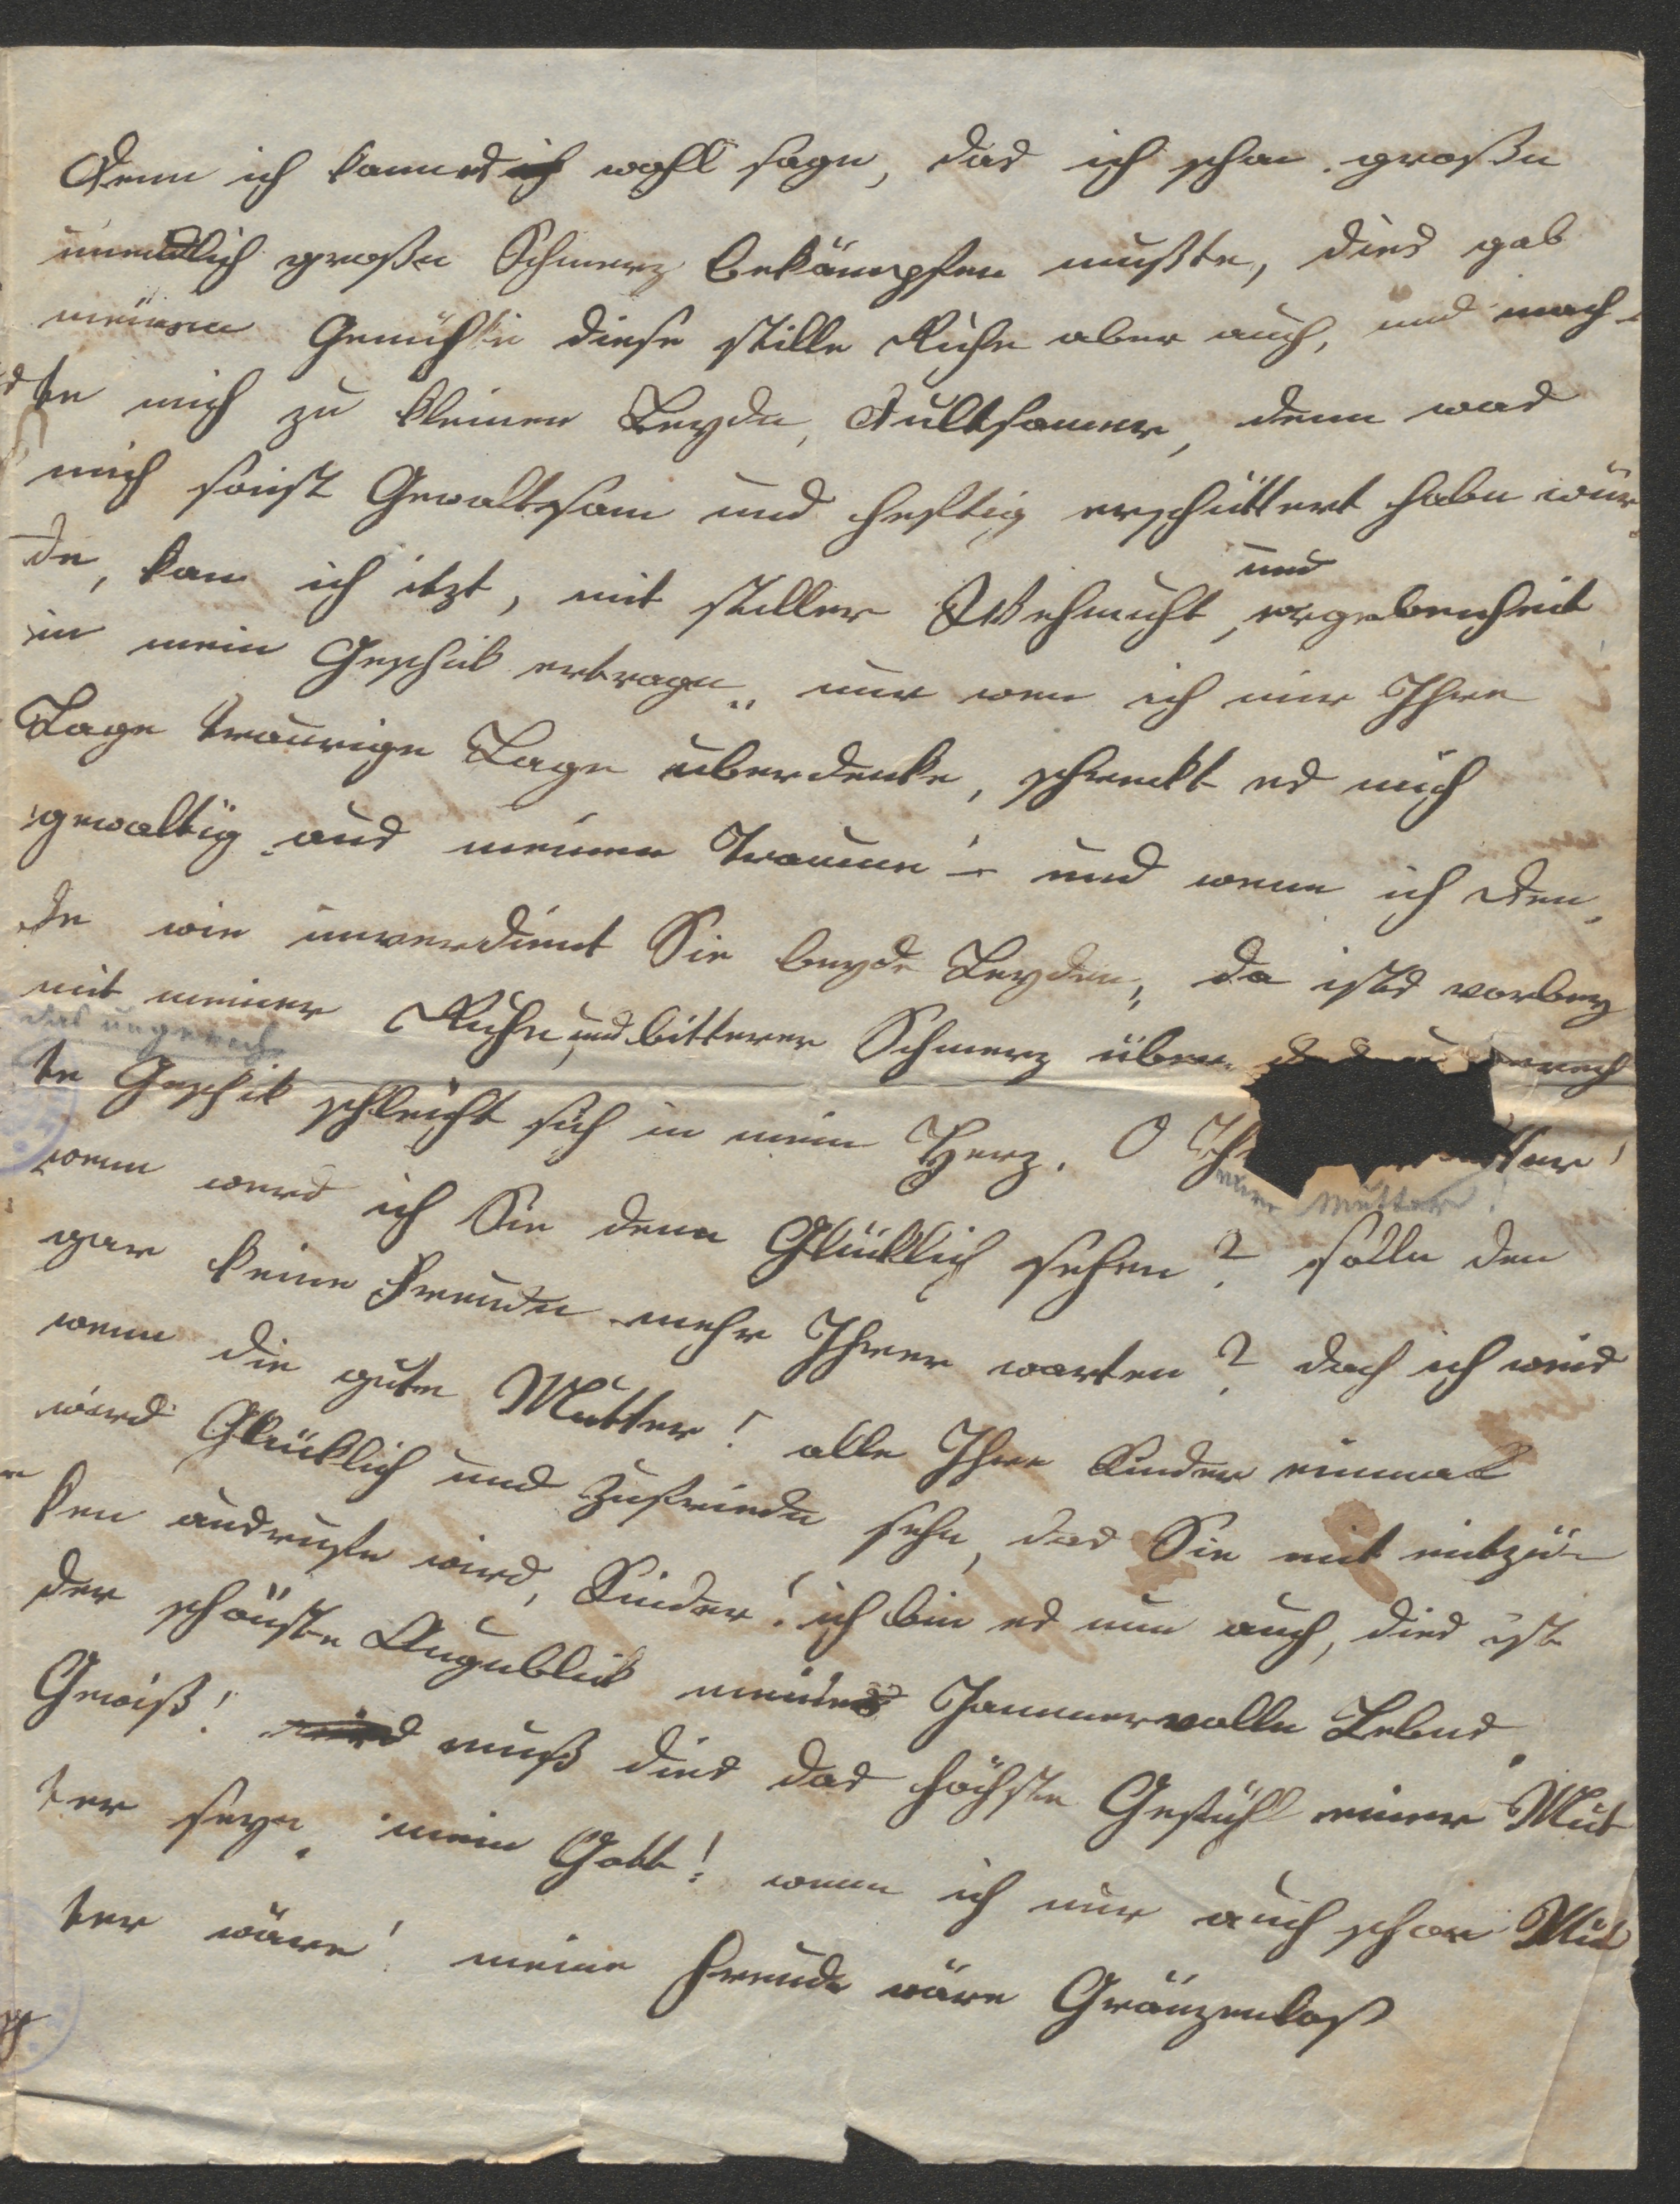 denn ich kann es ich wohl sagen, das ich schon großen
unendlich großen Schmerz bekämpfen mußte, dies gab
meinem Gemühte diese stille Ruhe aber auch, und mach-
te mich zu kleinen Leyden, dultsamer, denn was
mich sonst Gewaltsam und heftig erschüttert haben wür
de, kan ich itzt, mit stiller Wehmuht, und ergebenheit
in mein Geschik ertragen, nur wen ich mir Ihre
Lage traurige Lage überdenke, schrekt es mich
gewaltig aus meinen Traume – und wenn ich den,
ke wie unverdient Sie beyde Leyden, da ists vorbey
mit meiner Ruhe, und bitterer Schmerz über das ungerech
das ungerech
te Geschik schleicht sich in mein Herz. O Theure Mutter!
eure Mutter!
wenn werd ich Sie denn Glüklich sehen? sollen den
gar keine Freuden mehr Ihrer warten? doch ich weis
wenn die gute Mutter! alle Ihre Kinder einmal
wird Glüklich und zufrieden sehn, das Sie mit entzü-
ken ausrufen wird, Kinder! ich bin es nun auch, dies ist
der schönste Augenblik meines Jammervollen Lebens.
Gewiß! wird muß dies das höchste Gefühl einer Mut
ter seyn, mein Gott! wenn ich nur auch schon Mut
ter wäre! meine Freude wäre Gränzenloß